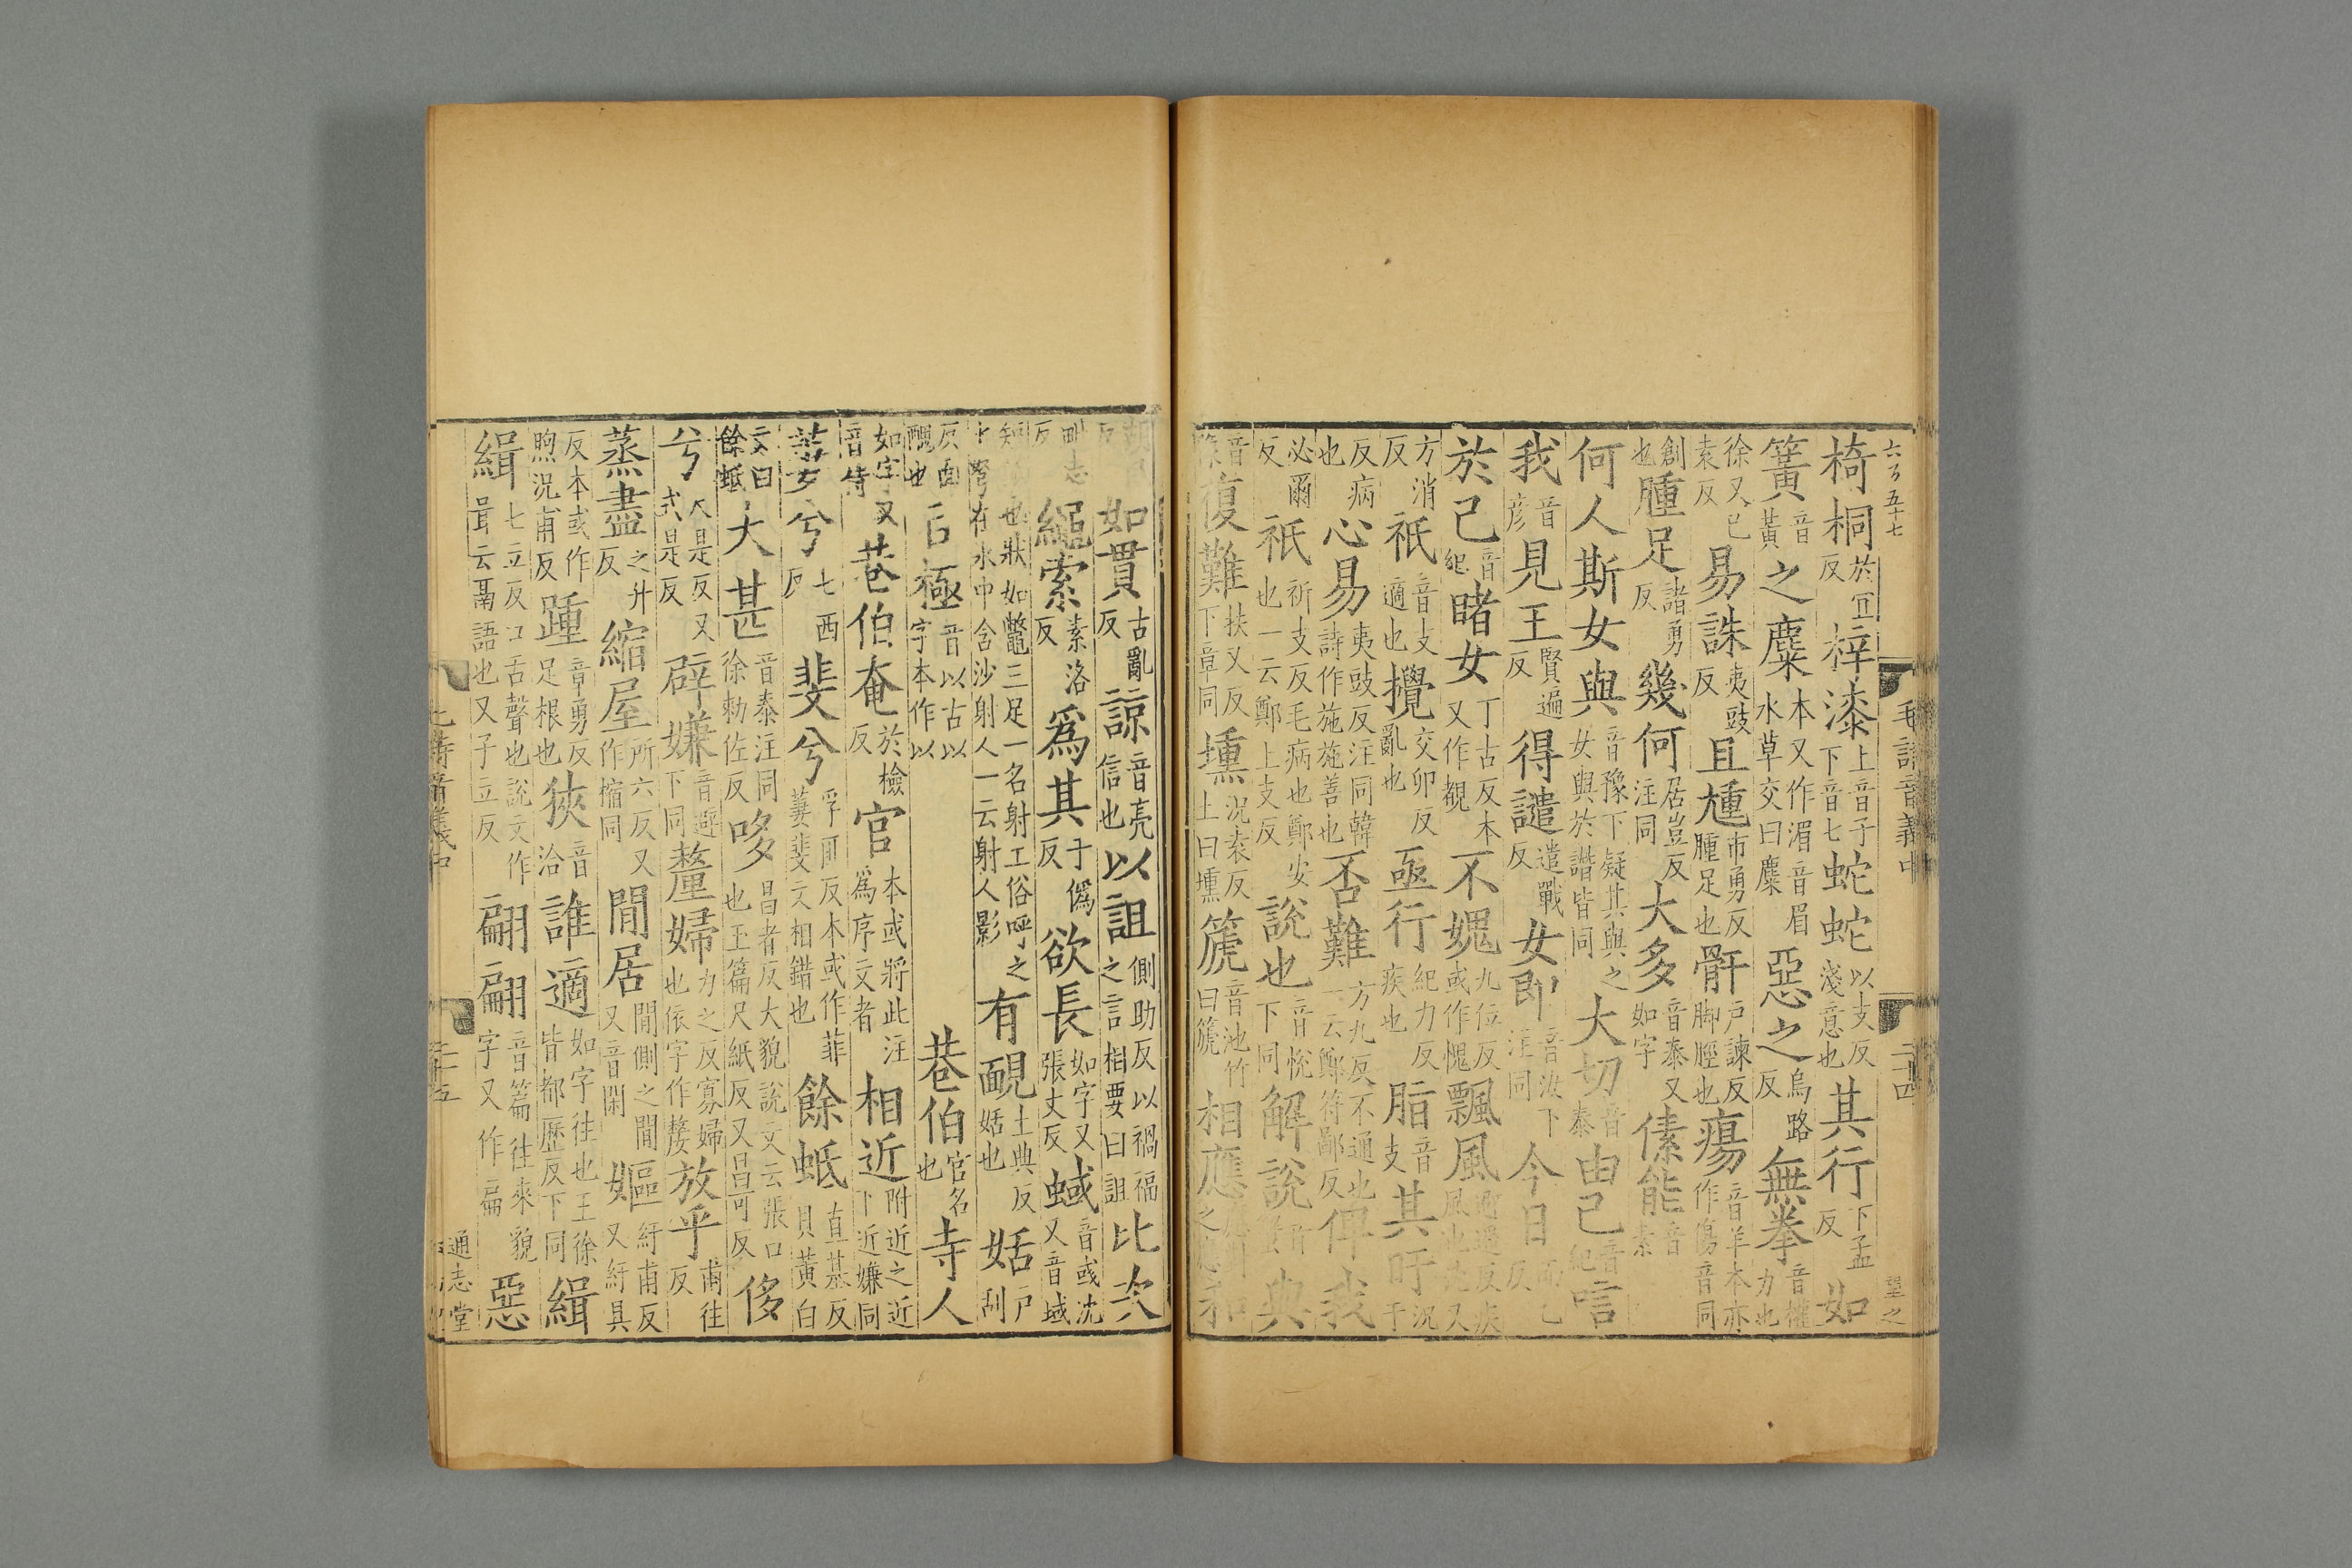 六百五十七
毛詩音義中
二十四
望之
椅桐於宜反梓漆上音子下音七蛇蛇以支反淺意也其行下孟反如
簧音黃之麋本又作湄音眉水草交曰麋惡之烏路反無拳音權力也
徐又己袁反易誅夷豉反且尰市勇反腫足也骭戶諫反脚脛也瘍音羊本亦作傷音同
創也腫足諸勇反幾何居豈反注同大多音泰又如字傃能音素
何人斯女與音豫下疑其與之女與於譖皆同大切音泰由己音紀唁
我音彥見王賢遍反得譴遣戰反女即音汝下注同今日而乙反
於己音紀睹女丁古反本又作覩不媿九位反或作愧飄風
方消反祇音支適也攪交卯反亂也亟行紀力反疾也脂音支其盱況于
反病也心易夷豉反注同韓詩作施施善也否難方九反不通也一云鄭符鄙反俾我
必爾反祇祈支反毛病也鄭安也一云鄭上支反說也音悅下同解說音蟹典
音復難扶又反下章同壎況袁反上曰壎篪音池竹曰篪相應和
如貫古亂反諒音亮信也以詛側助反以禍福之言相要曰詛比次
毗志反繩索素洛反爲其于僞反欲長如字又張丈反蜮音或沈又音域
短也狀如鼈三足一名射工俗呼之在水中含沙射人一云射人影有靦土典反姡也姡戶刮
反面醜也極音以古以字本作以巷伯官名也寺人
如字又音侍巷伯奄於檢反官本或將此注爲序文者相近附近之近下近嫌同
萋兮七西反斐兮孚匪反本或作菲萋斐文相錯也餘蚳直基反貝黃白
文曰餘蚳大甚音泰注同徐勅佐反哆昌者反大貌說文云張口也玉篇尺紙反又昌可反侈
兮尺是反又式是反辟嫌音避下同釐婦力之反寡婦也依字作嫠放乎甫往反
蒸盡之升反縮屋所六反又作樎同閒居閒側之閒又音閑嫗紆甫反又紆具
反本或作煦況甫反踵章勇反足根也狹音洽誰適如字往也王徐皆都歷反下同緝
緝七立反口舌聲也說文作咠云聶語也又子立反翩翩音篇往來貌字又作扁惡
二十五
通志堂